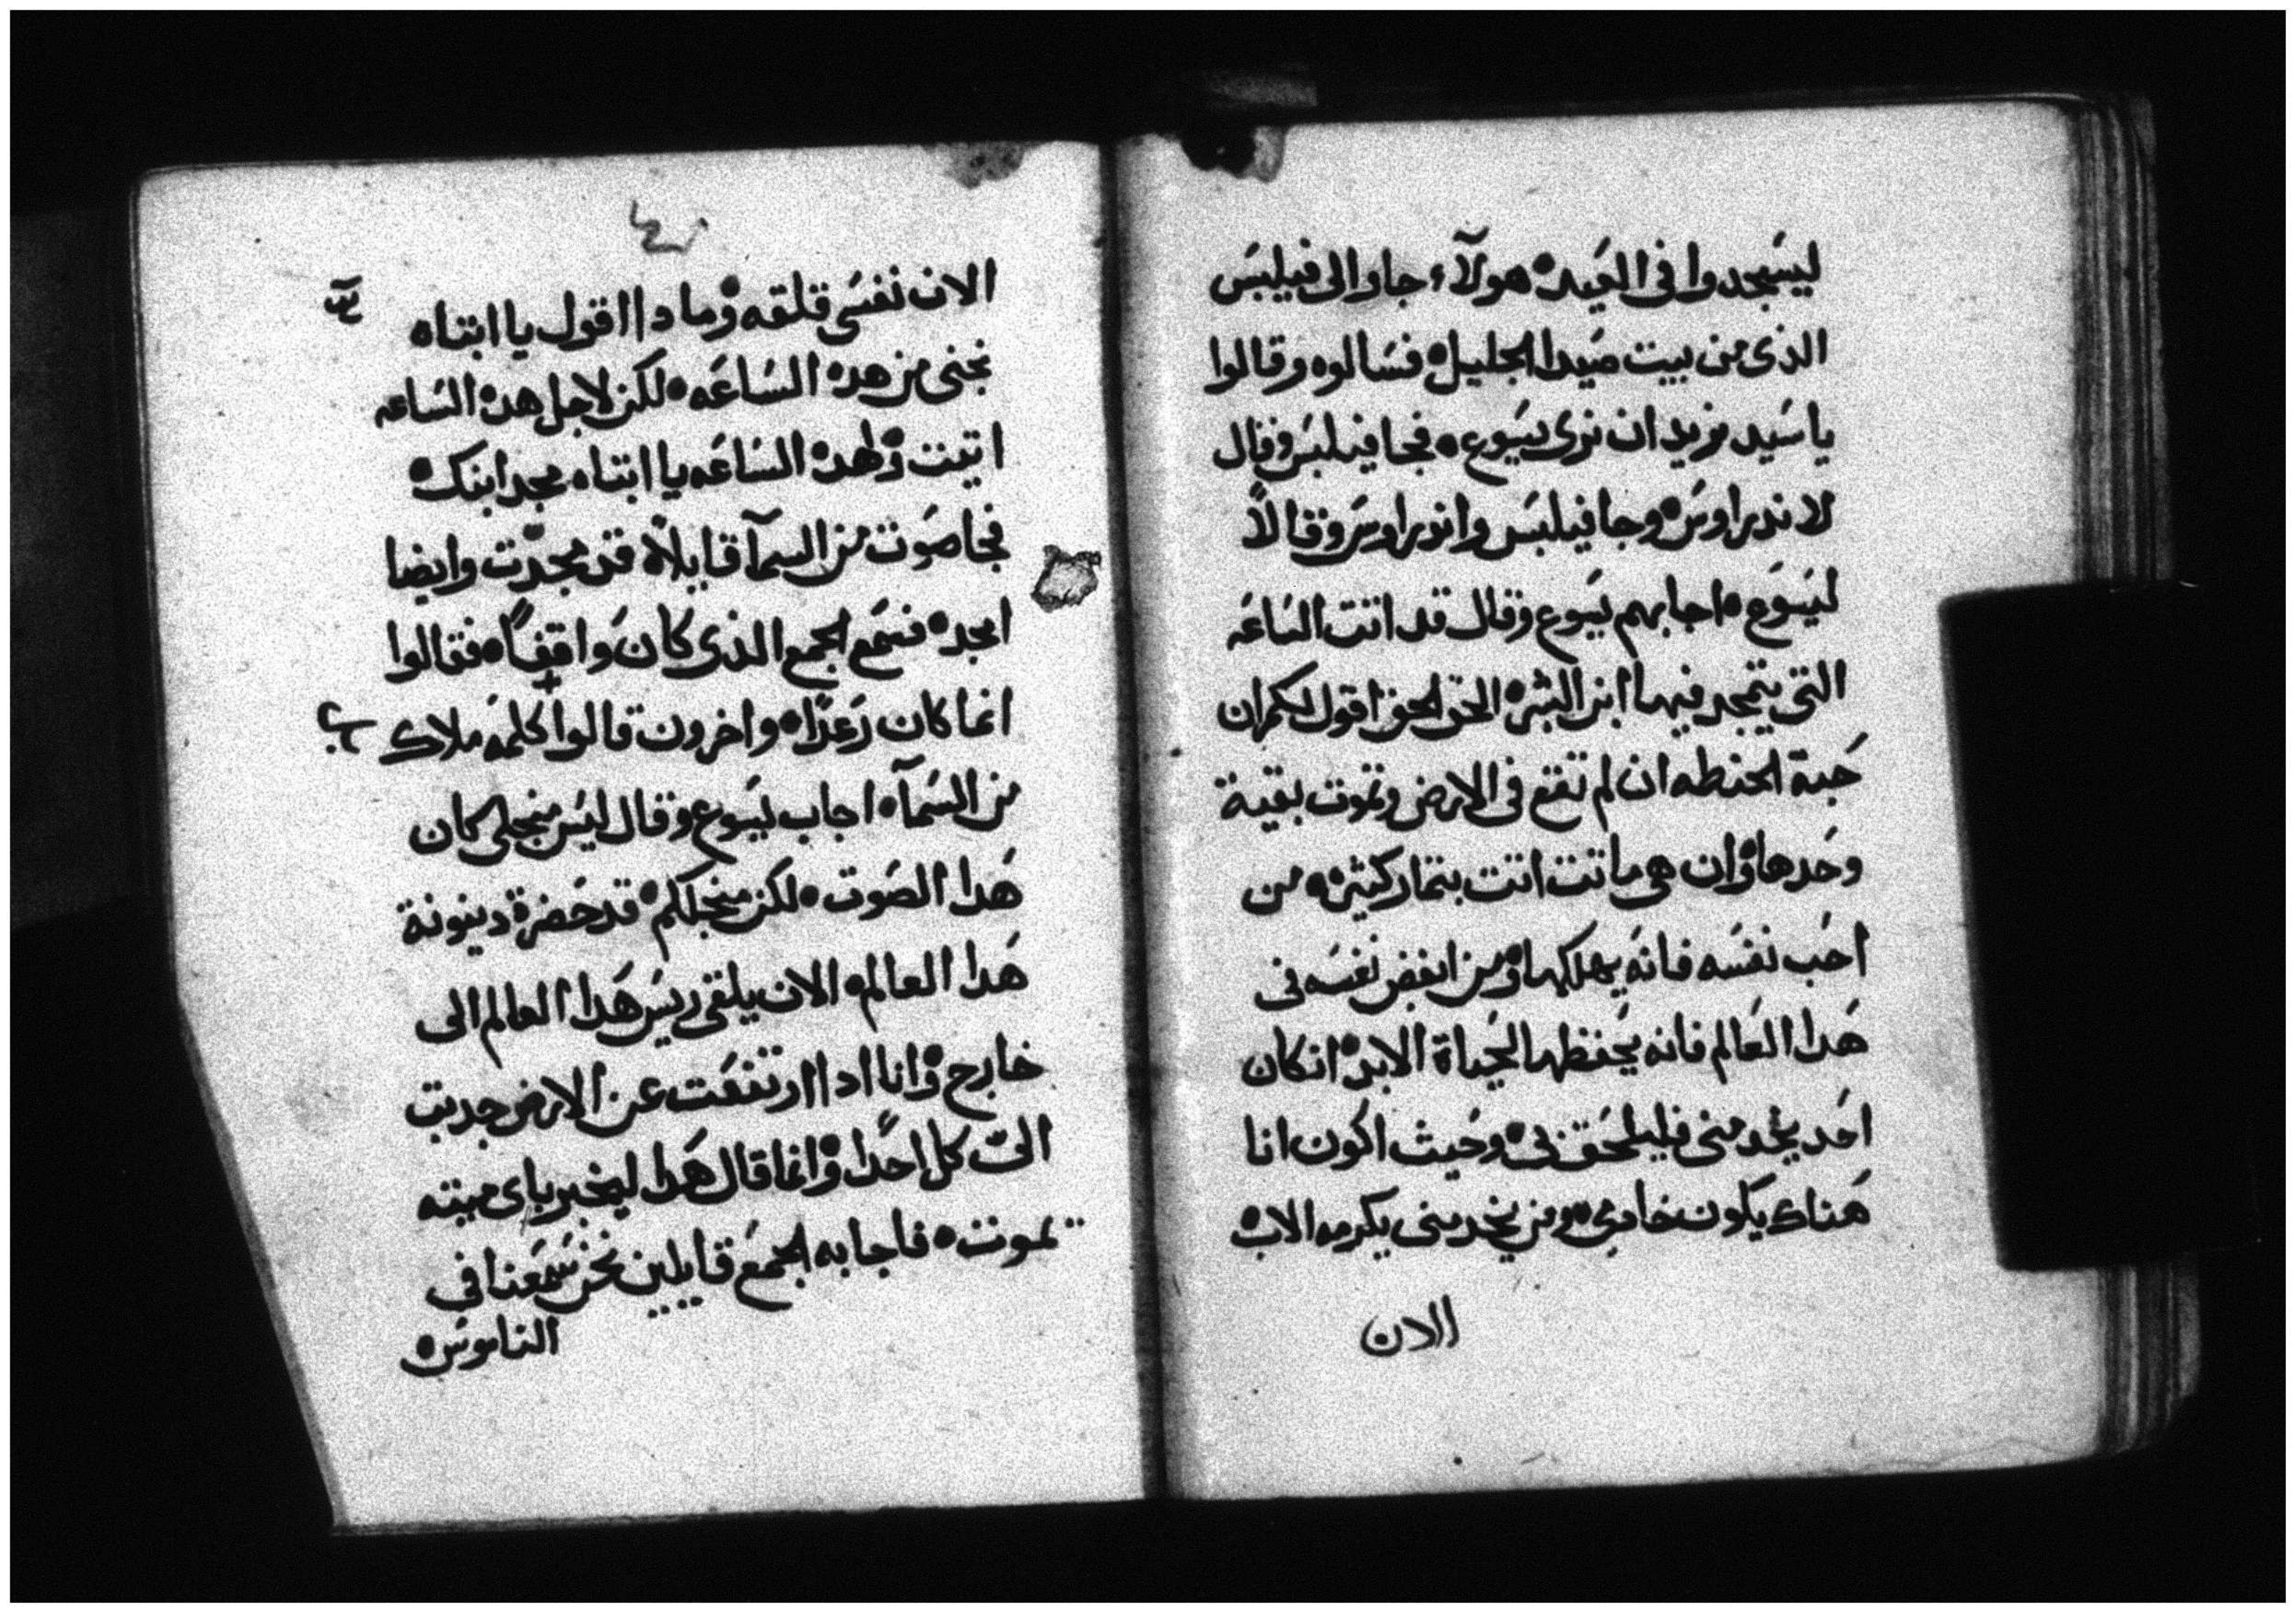 ليسجدوا في العيد ه هولآء جاوا الى فيلبس
الذي من بيت صيدا الجليل ه فسالوه وقالوا
يا سيد نريد ان نري يسوع ه فجا فيلبس وقال
لاندراوس ه وجا فيلبس واندراوس وقالاً
ليسوع ه اجابهم يسوع وقال قد اتت الساعه
التي يتمجد فيها ابن البشر ه الحق الحق اقول لكم ان
حبة الحنطه ان لم تقع في الارض وتموت بقية
وحدها ه وان هي ماتت اتت بتمار كثيره ه من
احب نفسه فانه يهلكها ه ومن ابغض نفسه في
هدا العالم فانه يحفظها لحياة الابد ه ان كان
احد يخدمني فليلحق بي ه وحيث اكون انا
هناك يكون خادمي ه ومن يخدمني يكرمه الاب ه
الان
الان نفسي قلقه ه وما دا اقول يا ابتاه
نجني من هده الساعه ه لكن لاجل هده الساعه
اتيت ه لهده الساعه يا ابتاه مجد ابنك ه
فجا صوت من السمآ قايلاً ه قد مجدت وايضا
امجد ه فسمع الجمع الذي كان واقفاً ه فقالوا
انما كان رعدًا ه واخرون قالوا كلمه ملاك
من السمآ ه اجاب يسوع وقال ليس منجلي كان
هدا الصوت ه لكن منجلكم ه قد حضرة دينونة
هدا العالم ه الان يلقى ريس هدا العالم الى
خارج ه وانا ادا ارتفعت عن الارض جدبت
الىّ كل احدًا ه وانما قال هدا ليخبر باي ميته
يموت ه فاجابه الجمع قايلين نحن سمعنا في
الناموس ه